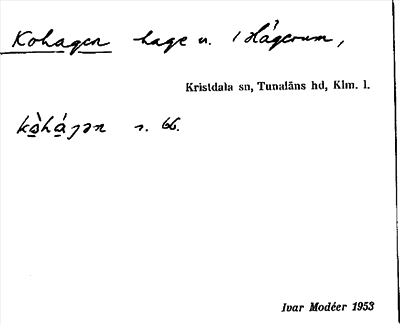 Kohagen hage u. Hägerum,
Kristdala sn, Tunaläns hd, Klm. l.
kòhágən s. 66.
Ivar Modéer 1953